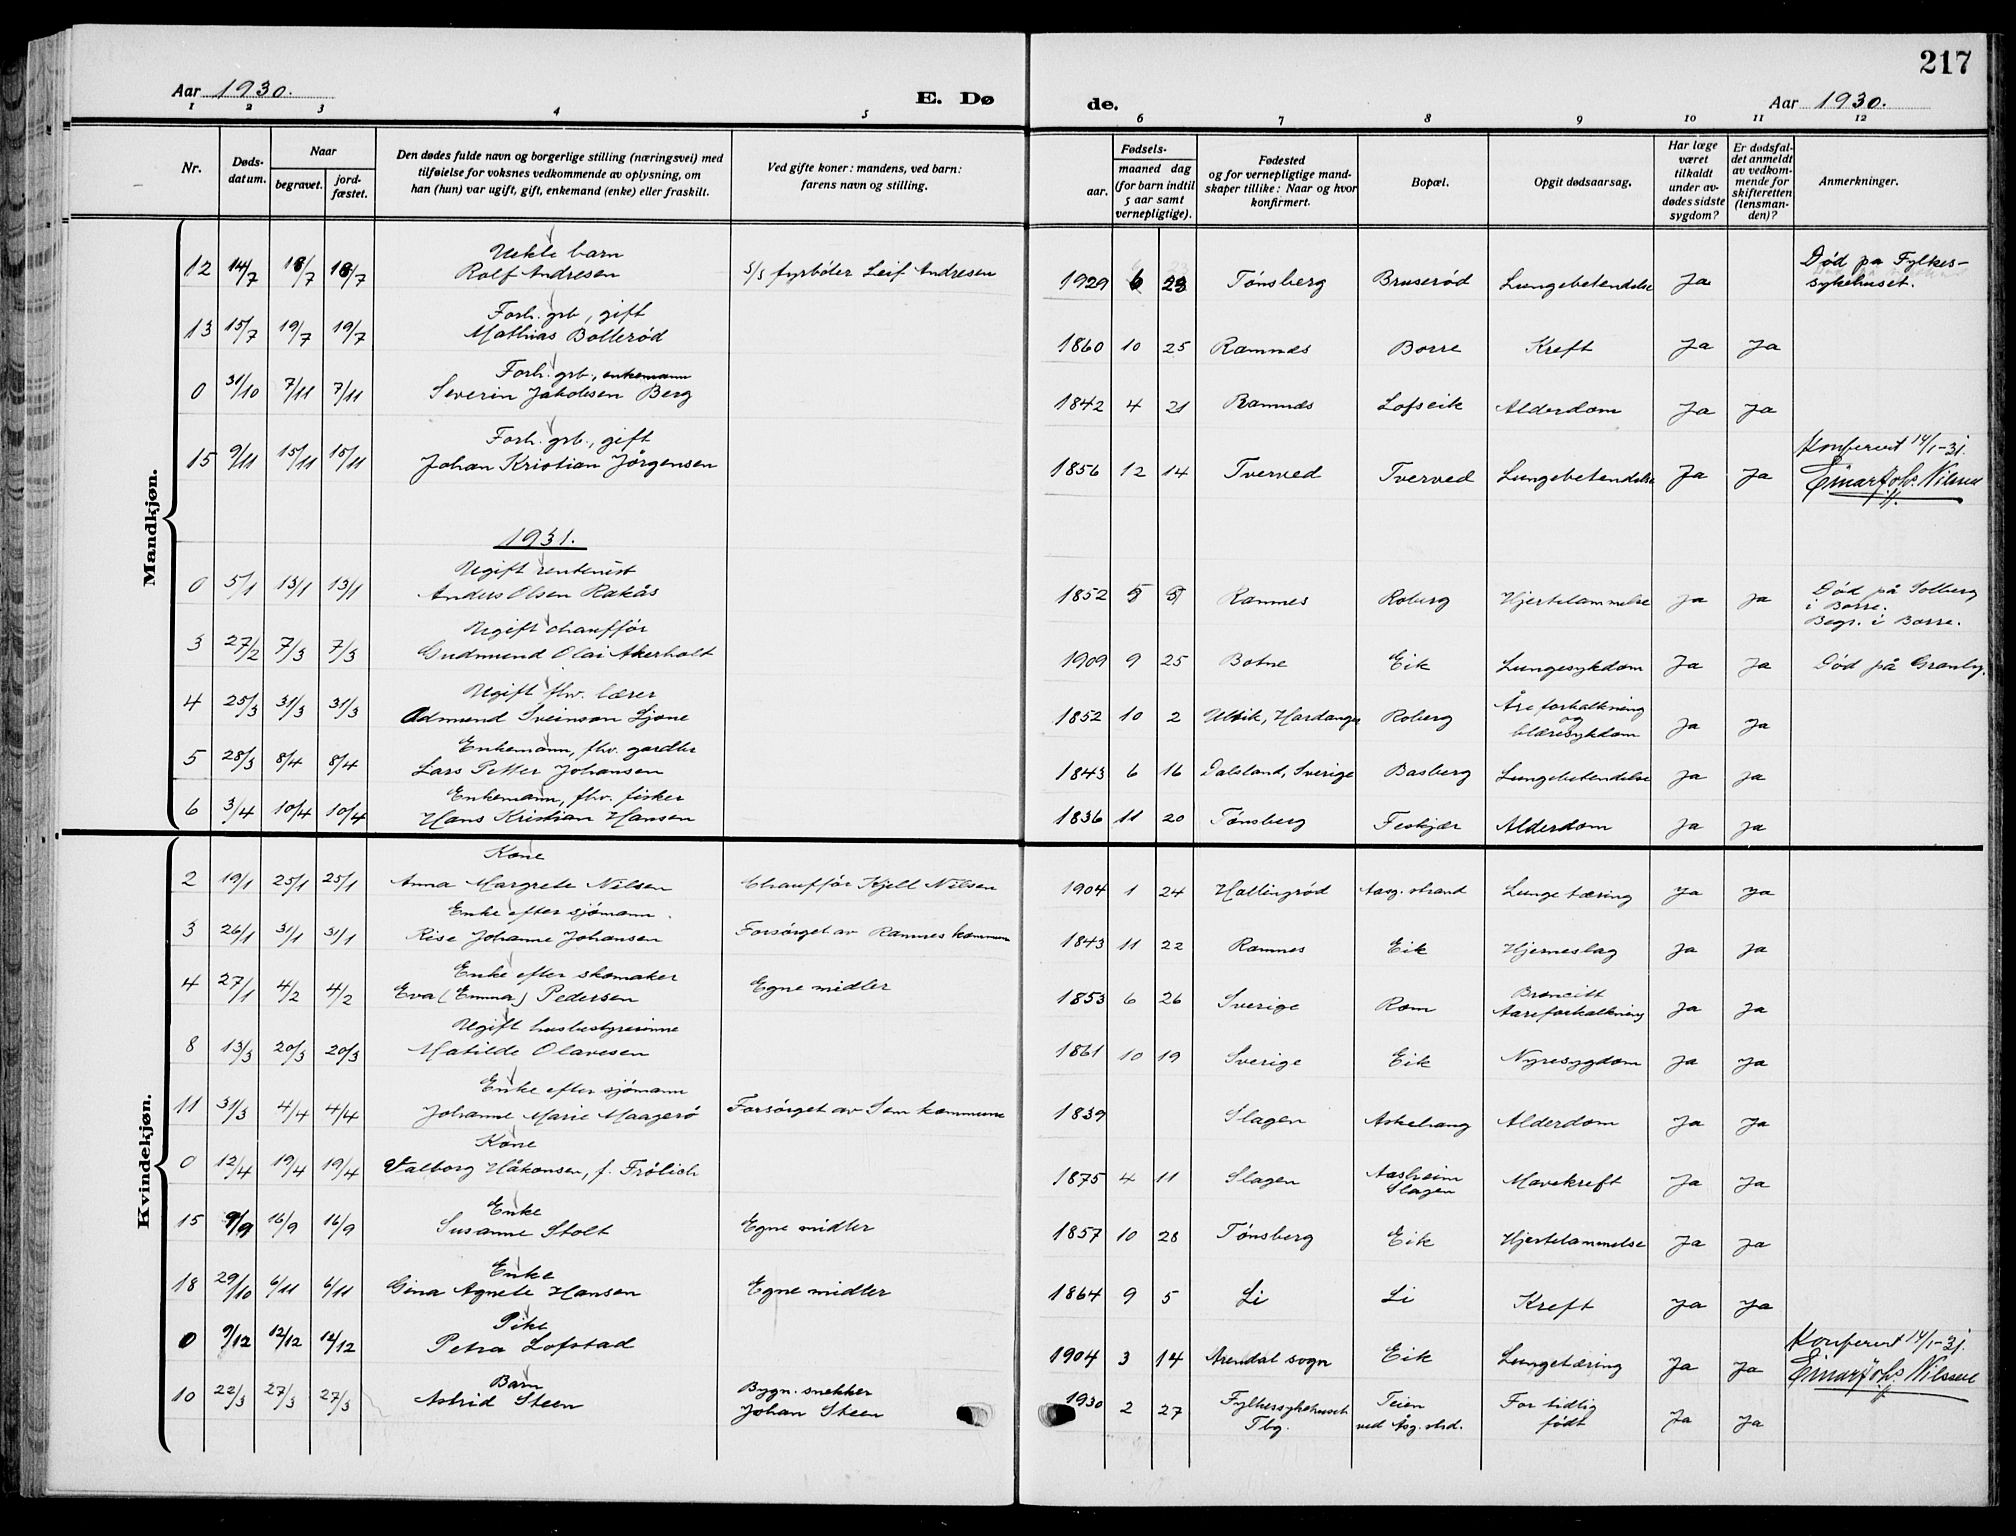 217
Aar 1930. E. Dø de. Aar 1930.
1 2 3 4 5 6 7 8 9 10 11 12
Nr. Døds-datum. Naar begravet. jord-fæstet. Den dødes fulde navn og borgerlige stilling (næringsvei) med tilføielse for voksnes vedkommende av oplysning, om han (hun) var ugift, gift, enkemand (enke) eller fraskilt. Ved gifte koner: mandens, ved barn: farens navn og stilling. Fødsels- aar. maaned dag (for barn indtil 5 aar samt vernepligtige). Fødested og for vernepligtige mand-skaper tillike: Naar og hvor konfirmert. Bopæl. Opgit dødsaarsag. Har læge været tilkaldt under av-dødes sidste sygdom? Er dødsfal-det anmeldt av vedkom-mende for skifteretten (lensman-den)? Anmerkninger.
Mandkjøn.
Uekte barn
12 14/7 18/7 18/7 Rolf Andresen s/s fyrbøter Leif Andresen 1929 6 23 Tønsberg Bruserød Lungebetendelse Ja Død på Fylkes-sykehuset.
Forh. grb., gift
13 15/7 19/7 19/7 Mathias Bollerød 1860 10 25 Ramnes Borre Kreft Ja Ja
Forh. grb., enkemann
0 31/10 7/11 7/11 Severin Jakobsen Berg 1842 4 21 Ramnes Lofseik Alderdom Ja Ja
Forh. grb., gift
15 9/11 15/11 15/11 Johan Kristian Jørgensen 1856 12 14 Tverved Tverved Lungebetendelse Ja Ja Konferert 14/1-31. Einar Johs. Nilssen
1931.
Ugift rentenist
0 5/1 13/1 13/1 Anders Olsen Rakås 1852 5 5 Ramnes Roberg Hjertelammelse Ja Ja Død på Solberg i Borre. Begr. i Borre.
Ugift chauffør
3 27/2 7/3 7/3 Gudmund Olai Akerholt 1909 9 25 Botne Eik Lungesykdom Ja Ja Død på Granly.
Ugift fhv. lærer
4 25/3 31/3 31/3 Admund Sveinson Ljone 1852 10 2 Ulvik, Hardanger Roberg Åreforkalkning og blæresykdom Ja Ja
Enkemann, fhv. gardbr
5 28/3 8/4 8/4 Lars Petter Johansen 1843 6 16 Dalsland, Sverige Basberg Lungebetendelse Ja Ja
Enkemann, fhv. fisker
6 3/4 10/4 10/4 Hans Kristian Hansen 1836 11 20 Tønsberg Feskjær Alderdom Ja Ja
Kvindekjøn.
Kone
2 19/1 25/1 25/1 Anna Margrete Nilsen Chauffør Kjell Nilsen 1904 1 24 Hallingrød Aasg. strand Lunge tæring Ja Ja
Enke efter sjømann.
3 26/1 31/1 31/1 Rise Johanne Johansen Forsørget av Ramnes kommune 1843 11 22 Ramnes Eik Hjerneslag Ja Ja
Enke efter skomaker
4 27/1 4/2 4/2 Eva (Emma) Pedersen Egne midler 1853 6 26 Sverige Rom Broncitt Aareforkalkning Ja Ja
Ugift husbestyrerinne
8 13/3 20/3 20/3 Matilde Olavesen 1861 10 19 Sverige Eik Nyresygdom Ja Ja
Enke efter sjømann
11 31/3 4/4 4/4 Johanne Marie Maagerø Forsørget av Sem kommune 1839 Slagen Askehaug Alderdom Ja Ja
Kone
0 12/4 19/4 19/4 Valborg Håkonsen, f. Frølich 1875 4 11 Slagen Aasheim Slagen Mavekreft Ja Ja
Enke
15 9/9 16/9 16/9 Susanne Stolt Egne midler 1857 10 28 Tønsberg Eik Hjertelammelse Ja Ja
Enke
18 29/10 6/11 6/11 Gina Agnete Hansen Egne midler 1864 9 5 Li Li Kreft Ja Ja
Pike
0 9/12 12/12 12/12 Petra Lofstad 1904 3 14 Arendal sogn Eik Lungetæring Ja Ja Konferert 14/1-31. Einar Johs. Nilssen
Barn
10 22/3 27/3 27/3 Astrid Steen Bygn. snekker Johan Steen 1930 2 27 Fylkessykehuset Tbg. Teien ved Åsg. strd. For tidlig født Ja Ja